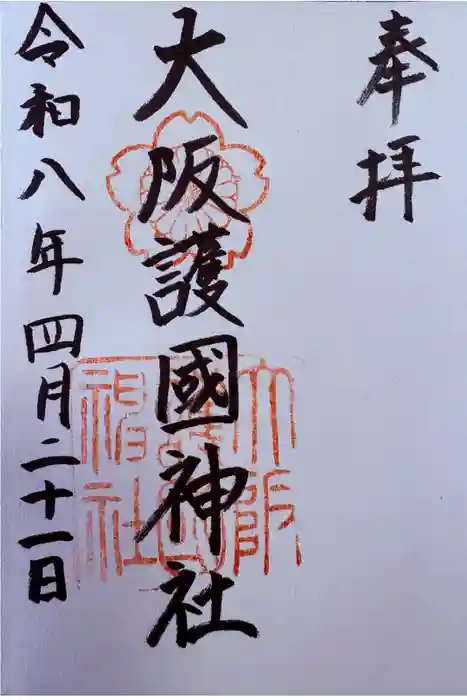 奉拝
大阪護國神社
大阪護國神社
令和八年四月二十一日